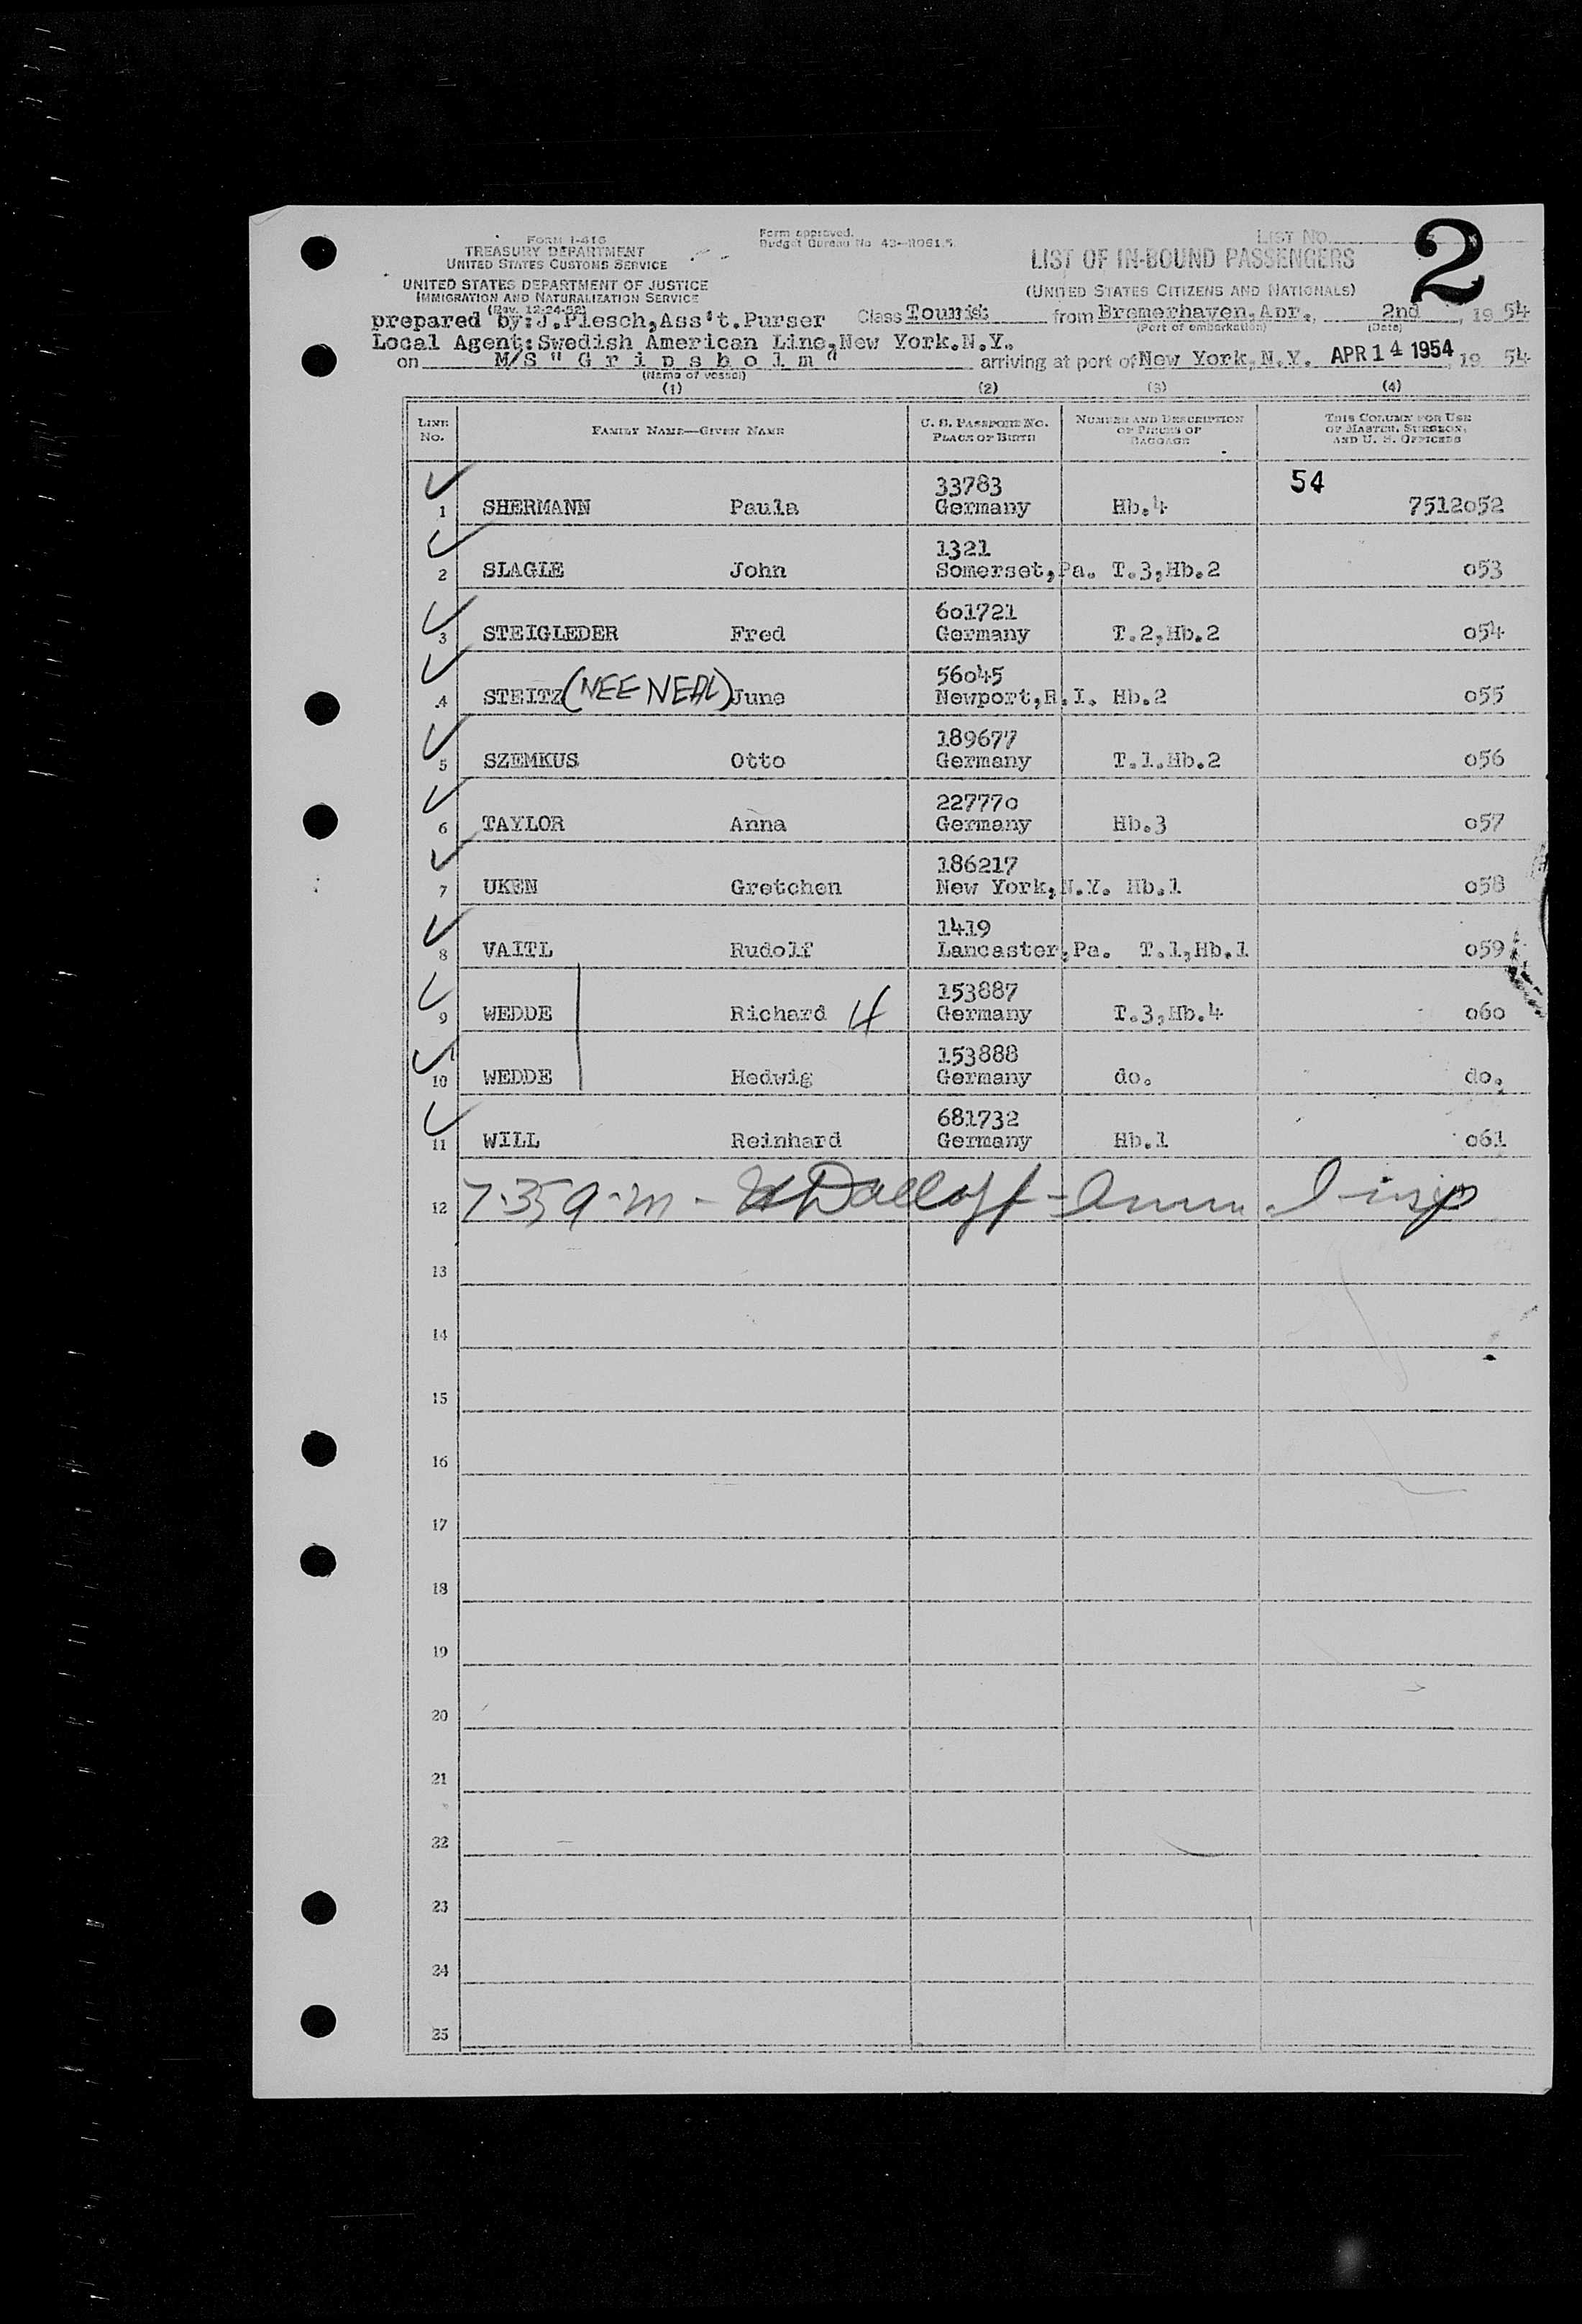 FORM I-416
TREASURY DEPARTMENT
UNITED STATES CUSTOMS SERVICE
UNITED STATES DEPARTMENT OF JUSTICE
IMMIGRATION AND NATURALIZATION SERVICE
(Rev. 12-24-52)
Form approved.
Budget Bureau No. 43-R061.5.
LIST NO.
2
LIST OF IN-BOUND PASSENGERS
(UNITED STATES CITIZENS AND NATIONALS)
prepared by: J.Plesch,Ass't.Purser Class Tourist from Bremerhaven,Apr., 2nd, 19 54
(Port of embarkation) (Date)
Local Agent:Swedish American Line,New York.N.Y.
on M/S "G r i p s h o l m" arriving at port of New York,N.Y. APR 14 1954, 19 54
(Name of vessel)
(1) (2) (3) (4)
LINE NO. FAMILY NAME—GIVEN NAME U. S. PASSPORT NO. PLACE OF BIRTH NUMBER AND DESCRIPTION OF PIECES OF BAGGAGE THIS COLUMN FOR USE OF MASTER, SURGEON, AND U. S. OFFICERS
33783 54
1 SHERMANN Paula Germany Hb.4 7512052
1321
2 SLAGLE John Somerset,Pa. T.3,Hb.2 053
601721
3 STEIGLEDER Fred Germany T.2,Hb.2 054
56045
4 STEITZ (NEE NEAL) June Newport,R.I. Hb.2 055
189677
5 SZEMKUS Otto Germany T.1.Hb.2 056
227770
6 TAYLOR Anna Germany Hb.3 057
186217
7 UKEN Gretchen New York,N.Y. Hb.1 058
1419
8 VAITL Rudolf Lancaster,Pa. T.1,Hb.1 059
153887
9 WEDDE Richard 4 Germany T.3,Hb.4 060
153888
10 WEDDE Hedwig Germany do. do.
681732
11 WILL Reinhard Germany Hb.1 061
12 7.35 a.m -
13
14
15
16
17
18
19
20
21
22
23
24
25